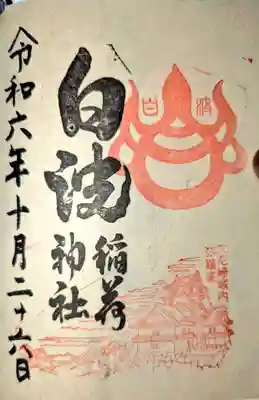 白波
稲荷
神社
白波
令和六年十月二十六日